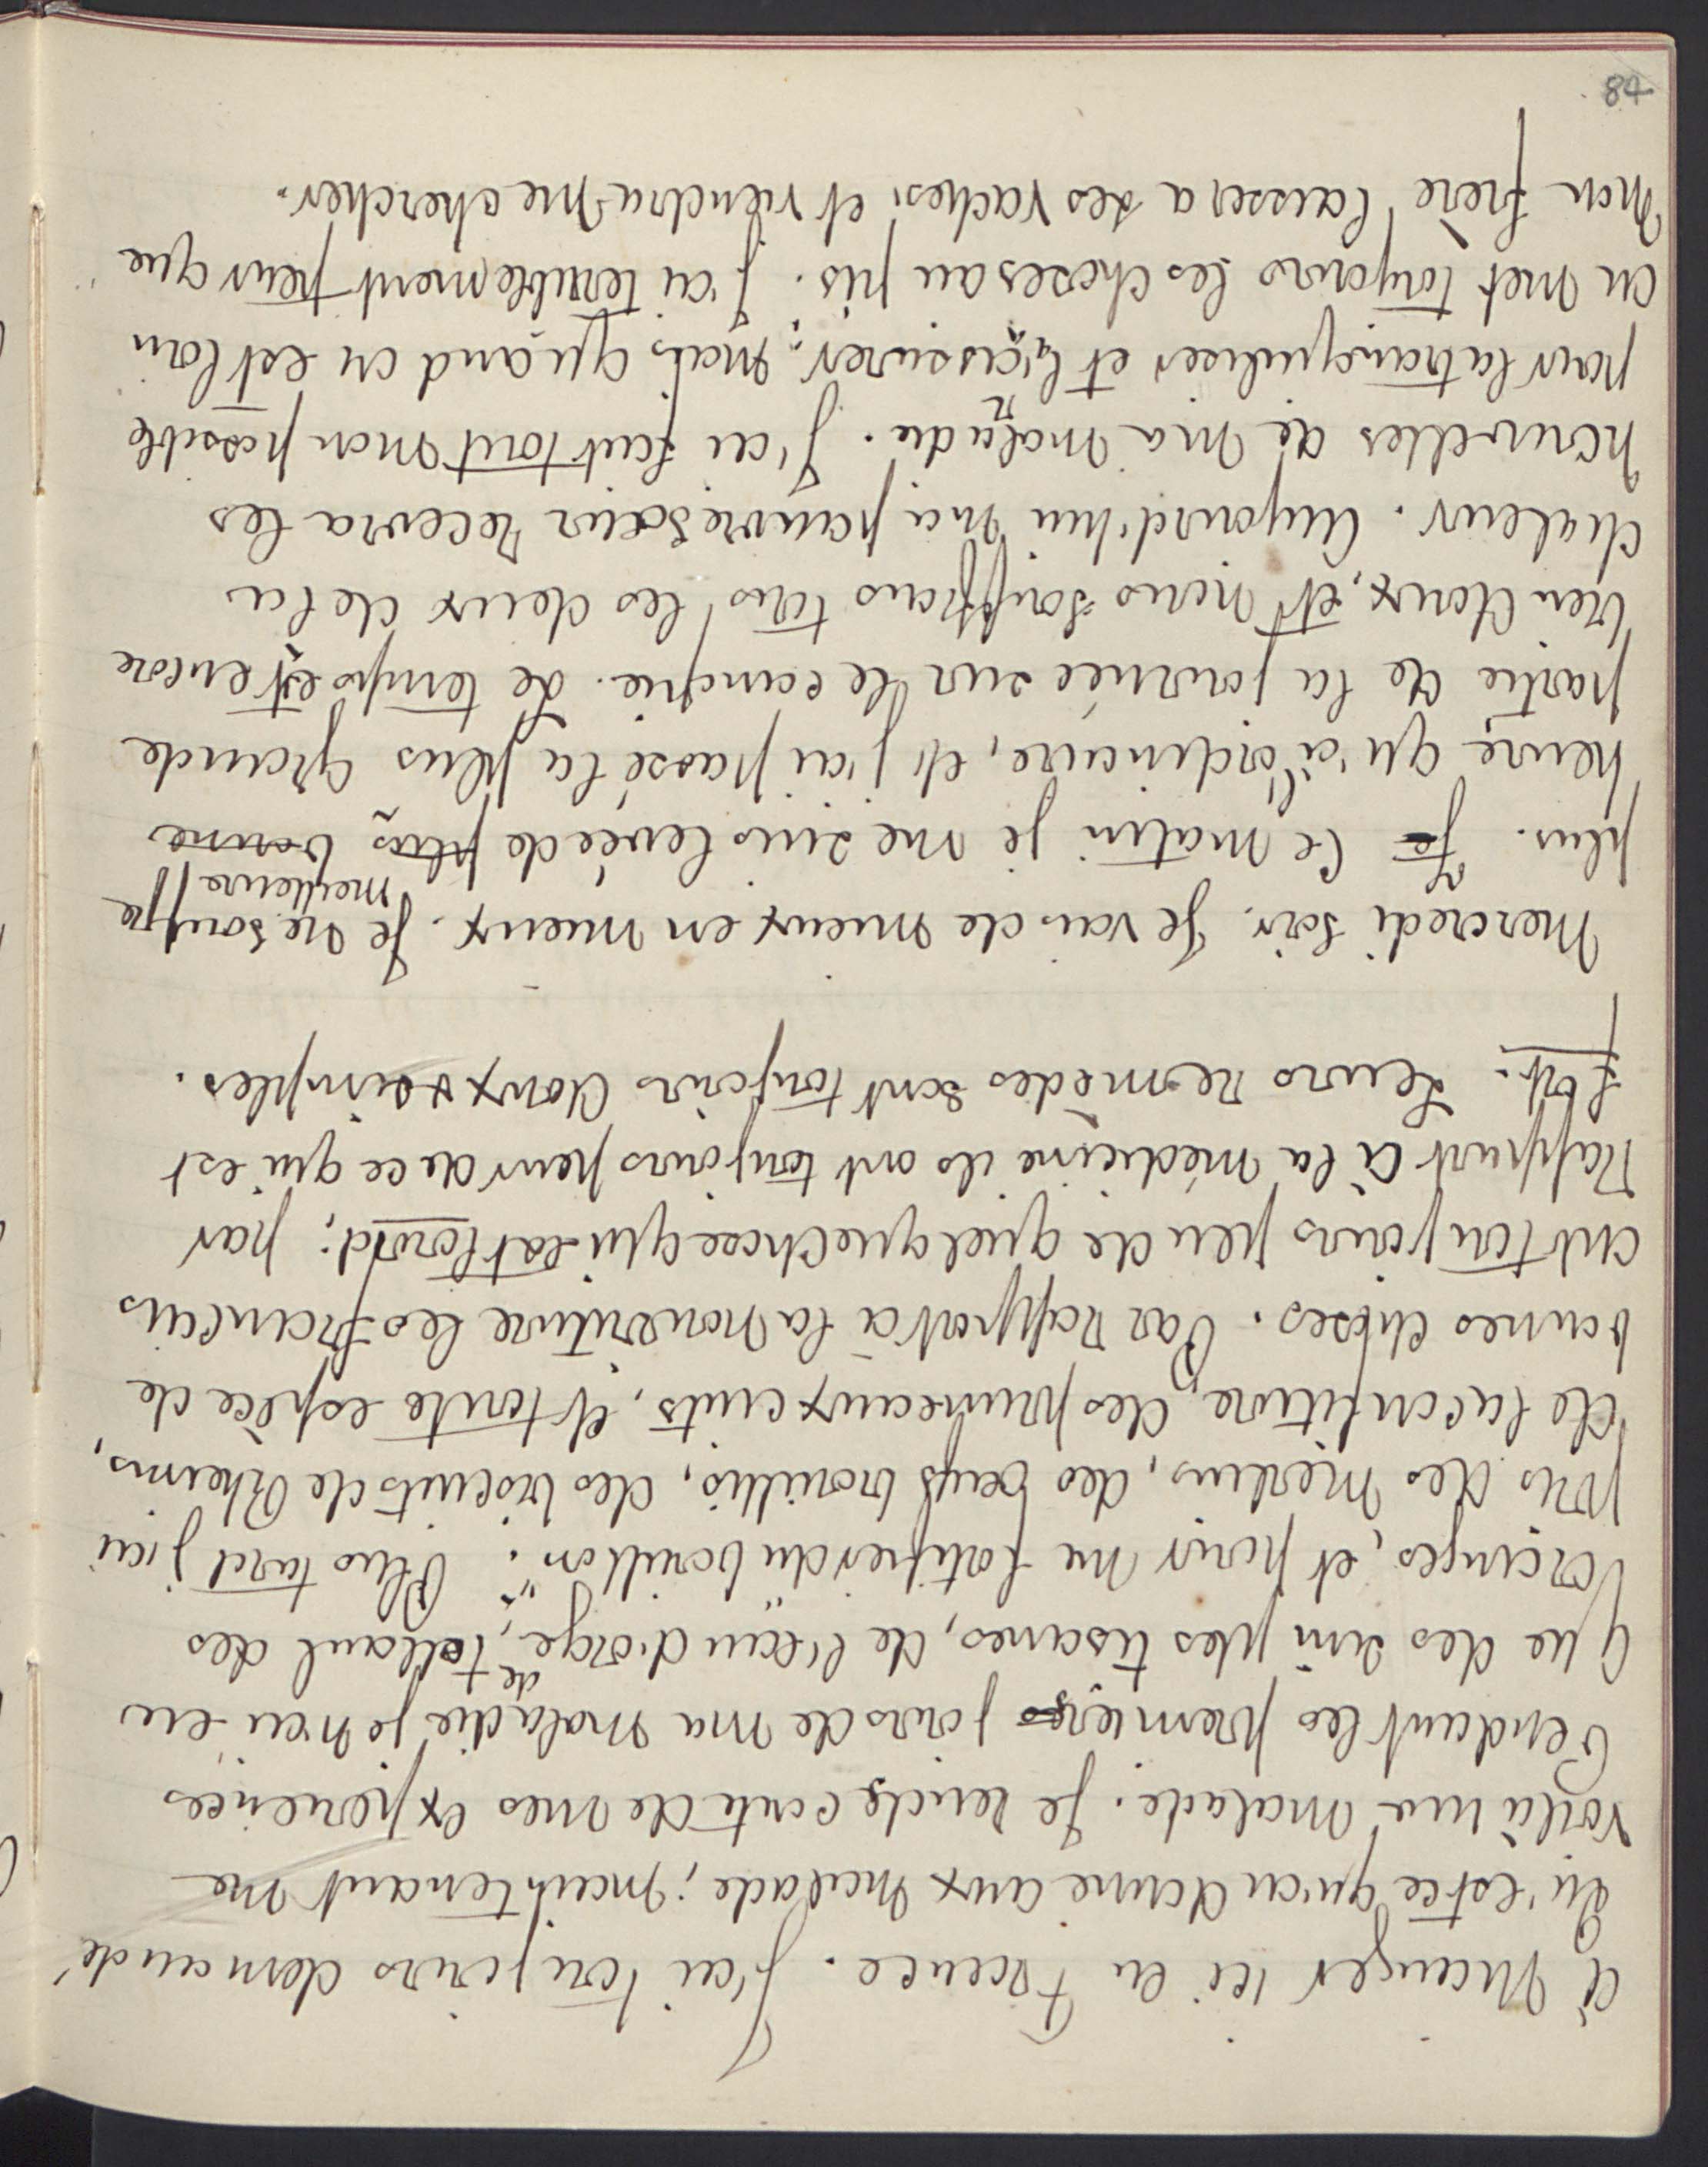 à manger ici en France. J'ai toujours demandé
Qu'est ce qu'on donne aux malade; maintenant me
voilà une malade. Je rends conte de mes expériences
Pendant les premiers jours de ma maladie je n'ai eu
que des simples tisanes, de l'eau d'orge, de tellant des
oranges, et pour me fortifier du "bouillon". Plus tard j'ai
pris des merlans, des œufs brouillés, des biscuits de Rheims,
de la confiture, des pruneaux cuits, et toute espèce de
bonnes choses. Par rapport à la nourriture les français
ont toujours peur de quelque chose qui est lourd; par
rapport à la médicine ils ont toujours peur de ce qui est
fort. Leurs remèdes sont toujours doux & simples.
Mercredi soir. Je vais de mieux en mieux. Je ne souffre
plus. Je Ce matin je me suis levée de plus bonne meilleure
heure qu'à l'ordinaire, et j'ai passé la plus grande
partie de la journée sur le canapie. Le temps est encore
bien doux, et nous souffrons tous les deux de la
chaleur. Aujourd'hui ma pauvre sœur recevra les
nouvelles de ma maladie. J'ai fait tout mon possible
pour la tranquiliser et l'assurer; mais quand on est loin
on met toujours les choses au pis. J'ai terriblement peur que
mon frère laissera ses vaches, et viendra me chercher.
84